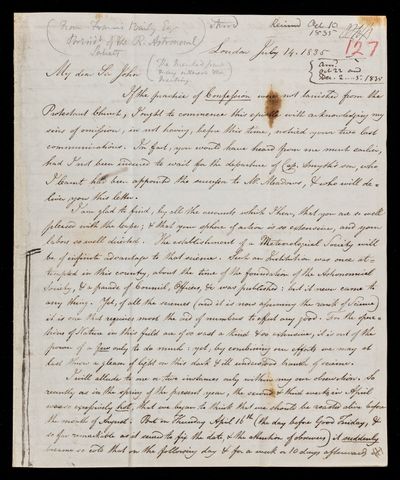 From Francis Baily Esq
President of the R. Astronomical
Society
Received Oct. 10
1835
127
London July 14. 1835
My dear Sir John
If the practice of Confession were not banished from the
Protestant Church, I ought to commence this epistle with acknowledging my
sins of omission, in not having, before this time, noticed your two last
communications. In fact, you would have heard from me much earlier,
had I not been induced to wait for the departure of Cap. Smyth's son who
I learnt has been appointed the successor to Mr. Meadows, & who will de-
liver you this letter.
I am glad to find, by all the accounts which I hear, that you are so well
pleased with the Cape; & that your sphere of action is so extensive, and your
labors so well directed. The establishment of a Meteorological Society will
be of infinite advantage to that science. Such an Institution was once at-
tempted in this country, about the time of the foundation of the Astronomical
Society, & a parade of Council, Officers, &c was published: but it never came to
any thing. Yet, of all the sciences (and it is now assuming the rank of Science)
it is one that requires most the aid of numbers to effect any good. For the opera-
tions of Nature in this field are of so vast a kind & so extensive, it is not in the
power of a few only to do much: yet, by combining our efforts we may at
last throw a gleam of light on this dark & ill understood branch of science.
I will allude to one or two instances only within my own observation. So
recently as in the spring of the present year, the second & third weeks in April
were so excessively hot, that we began to think that we should be roasted alive before
the month of August. But on Thursday April 16th (the day before Good Friday, &
so far remarkable as it served to fix the date, & the attention of observers) it suddenly
became so cold that on the following day & for a week or 10 days afterwards